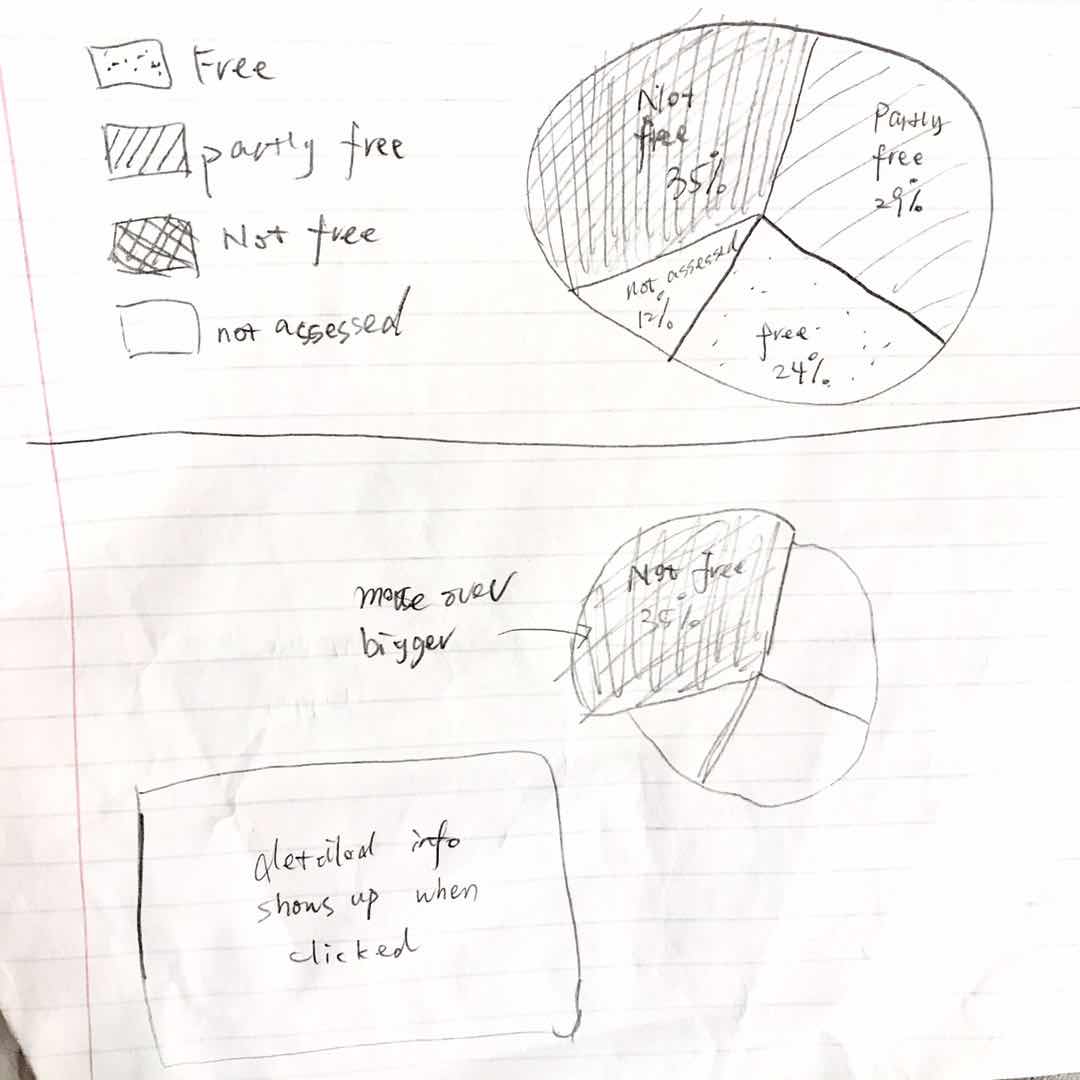 Free
partly free
Not free
not assessed
Not
free
35%
Partly
free
29%
not assessed
12%
free
24%
mouse over
bigger
Not free
35%
detailed info
shows up when
clicked